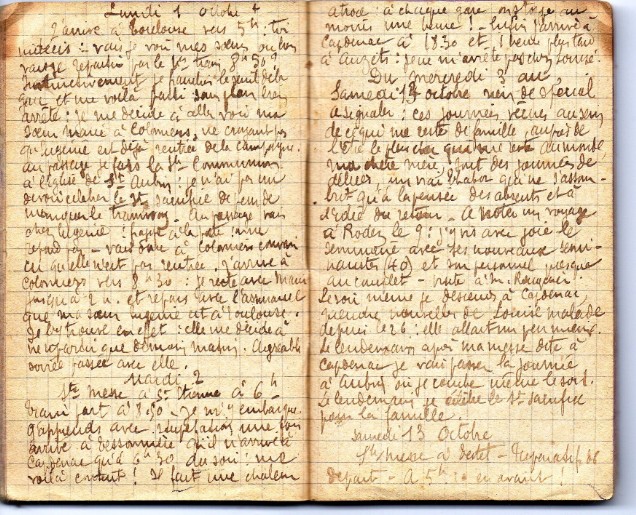 Lundi 1 Octobre
J'arrive à Toulouse vers 5h :
vais-je voir mes sœurs ou bien
vais-je repartir par le 1er train
Instinctivement je franchis le seuil de la
gare et me voilà parti sans plan bien
arrêté : je me décide à aller voir ma
sœur Marie à Colomiers, ne croyant pas
qu'Eugénie est déjà rentrée de la campagne.
Au passage je fais la Ste Communion
à l'église de St Aubin : je n'ai pas cru
devoir célébrer le St sacrifice de peur de
manquer le tramway - Au passage vais
chez Eugénie : frappe à la porte : rien ne
répond - vais donc à Colomiers convain
cu qu'elle n'est pas rentrée. J'arrive à
Colomiers vers 8h30 : je reste avec Marie
jusqu'à 2 h. et repars avec l'assurance
que ma sœur Eugénie est à Toulouse.
Je la trouve en effet : elle me décide à
ne repartir que demain matin. Agréable
soirée passée avec elle.
Mardi 2
Ste messe à St Etienne à 6h
train part à 8h50 - Je m'y embarque
J'apprends avec une fois
arrivé à Tessonnières qu'il n'arrive à
Capdenac qu'à 6h30 du soir : me
voilà content ! Il fait une chaleur
atroce : à chaque gare on stoppe au
moins une heure ! - Enfin j'arrive à
Capdenac à 18h30 et 1 heure plus tard
à : je ne m'arrête pas chez Louise.
Du mercredi 3 au
Samedi 13 octobre rien de spécial
à signaler : ces journées vécues au sein
de ce qui me reste de famille, auprès de
l'être le plus cher qui me reste au monde,
ma chère mère, sont des journées de
délices, un vrai Thabor qui ne s'assom-
brit qu'à la pensée des absents et à
l'idée du retour. - A noter un voyage
à Rodez le 9 : j'y vis avec joie le
séminaire avec ses nouveaux sémi-
naristes (40) et son personnel presque
au complet - visite à Mr.
Le soir même je descends à Capdenac,
prendre nouvelles de Louise malade
depuis le 26 : elle allait un peu mieux.
Le lendemain après ma messe dite à
Capdenac je vais passer la journée
à Aubin où je couche même le soir.
Le lendemain je célèbre le St sacrifice
pour la famille.
Samedi 13 Octobre
Ste messe à - Préparatifs de
départ - A 5h en avant !